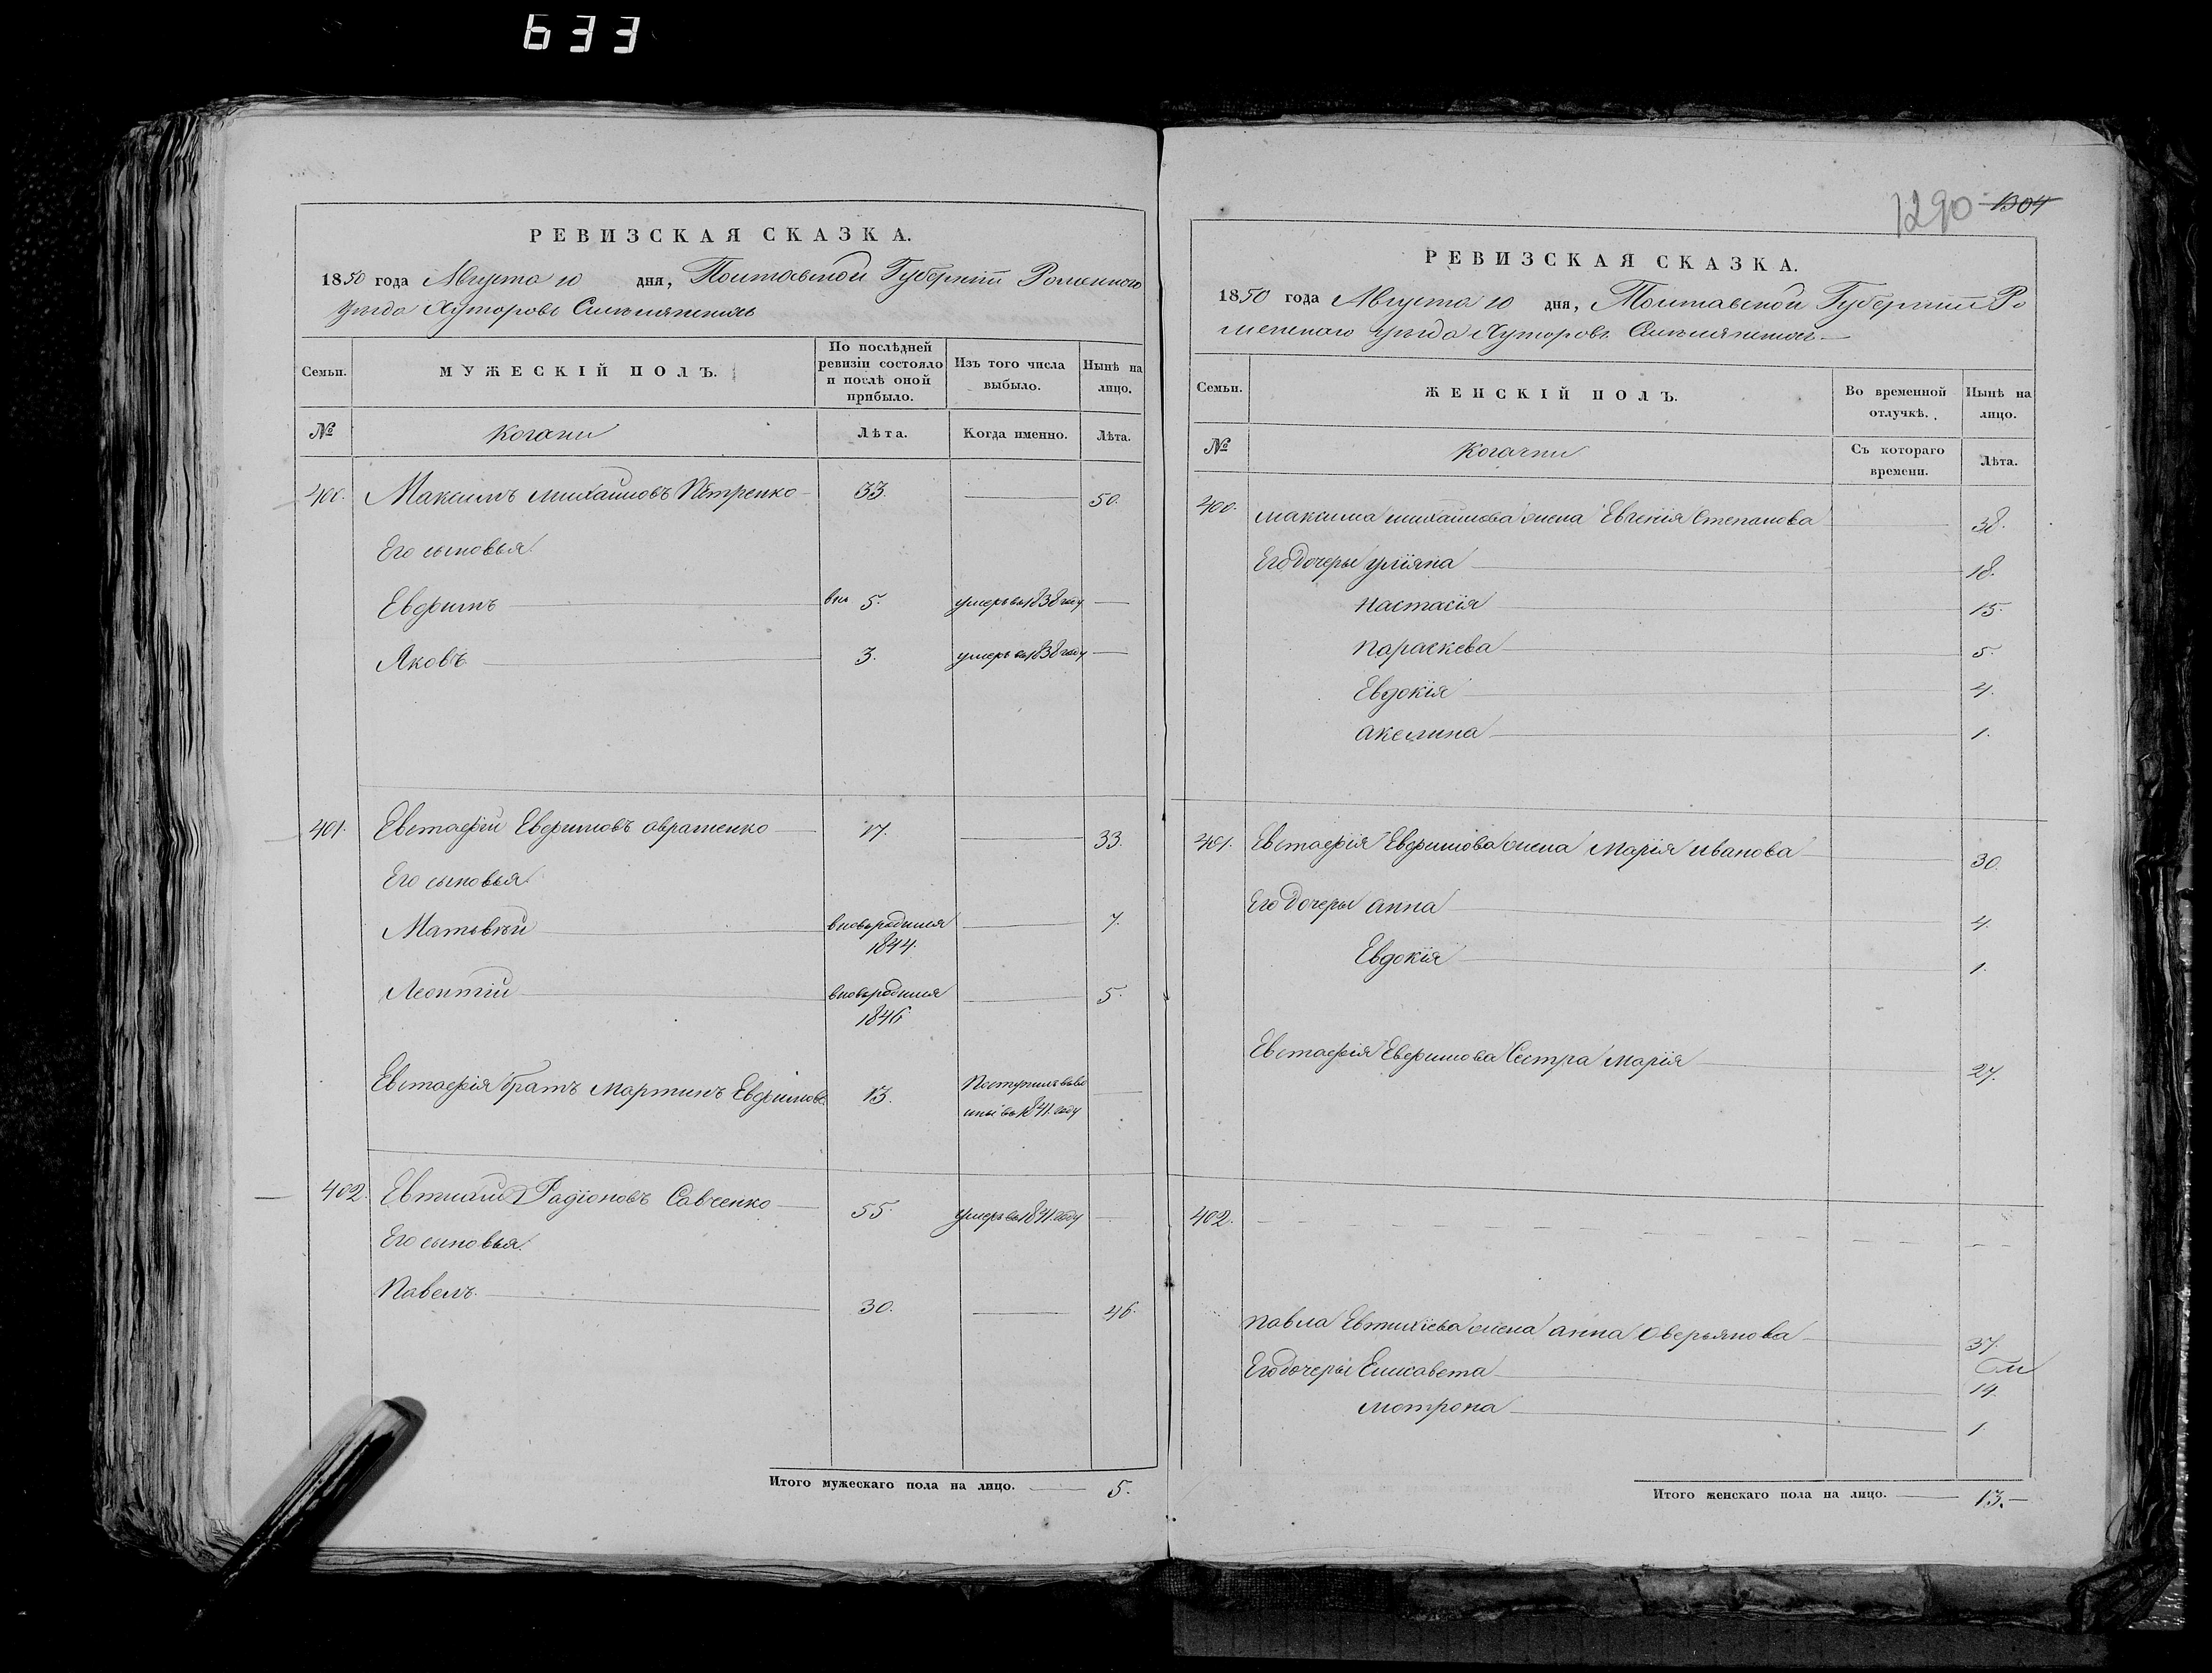 633
РЕВИЗСКАЯ СКАЗКА.
1850 года Августа 10 дня, Полтавской Губерніи Роменского
уезда Хуторовъ
Семьи.
МУЖЕСКІЙ ПОЛЪ.
По послѣдней ревизіи состояло и послѣ оной прибыло.
Изъ того числа выбыло.
Нынѣ на лицо.
№
Лѣта.
Когда именно.
Лѣта.
400. Максимъ Михайловъ Петренко 33. 50.
Его сыновья
Евфимъ 5. умеръ въ 1838 году
Яковъ 3. умеръ въ 1838 году
401. Евстафій Евфимовъ Авраменко 17. 33.
Его сыновья
Матвѣй вновьродился 7.
1844.
Леонтій вновьродился 5.
1846
Евстафія братъ Мартинъ Евфимовъ 13. Поступилъ
въ 1841. году
402. Евтихій Радіоновъ Савченко 55. умеръ въ 1841 году
Его сыновья.
Павелъ. 30. 46.
Итого мужескаго пола на лицо. 5.
1290 1304
РЕВИЗСКАЯ СКАЗКА.
1850 года Августа 10 дня, Полтавской Губерніи Ро
менскаго уезда Хуторовъ
Семьи.
ЖЕНСКІЙ ПОЛЪ.
Во временной отлучкѣ.
Нынѣ на лицо.
№
Съ котораго времени.
Лѣта.
400. Максима Михайлова жена Евгенія Степанова 38.
Его дочеры Уліяна 18.
Настасія 15.
Параскева 5.
Евдокія 4.
Акелина 1.
401. Евстафія Евфимова жена Марія Иванова 30.
Его дочеры Анна 4.
Евдокія 1.
Евстафія Евфимова Сестра Марія 27.
402.
Павла Евтихіева жена Анна Оверьянова 37.
Его дочеры Елисавета 14.
Мотрона 1
Итого женскаго пола на лицо. 13.